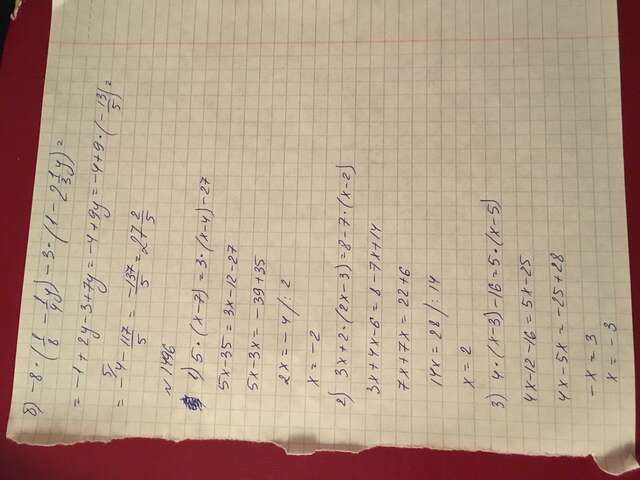 б) -8·(1/8 - 1/4y) - 3·(1 - 2 1/3y) =
= -1 + 2y - 3 + 7y = -4 + 9y = -4 + 9·(-13/5) =
= -4 - 117/5 = -137/5 = 27 2/5
№ 1496
1) 5·(x-7) = 3·(x-4) - 27
5x - 35 = 3x - 12 - 27
5x - 3x = -39 + 35
2x = -4 /: 2
x = -2
2) 3x + 2·(2x-3) = 8 - 7·(x-2)
3x + 4x - 6 = 8 - 7x + 14
7x + 7x = 22 + 6
14x = 28 /: 14
x = 2
3) 4·(x-3) - 16 = 5·(x-5)
4x - 12 - 16 = 5x - 25
4x - 5x = -25 + 28
-x = 3
x = -3